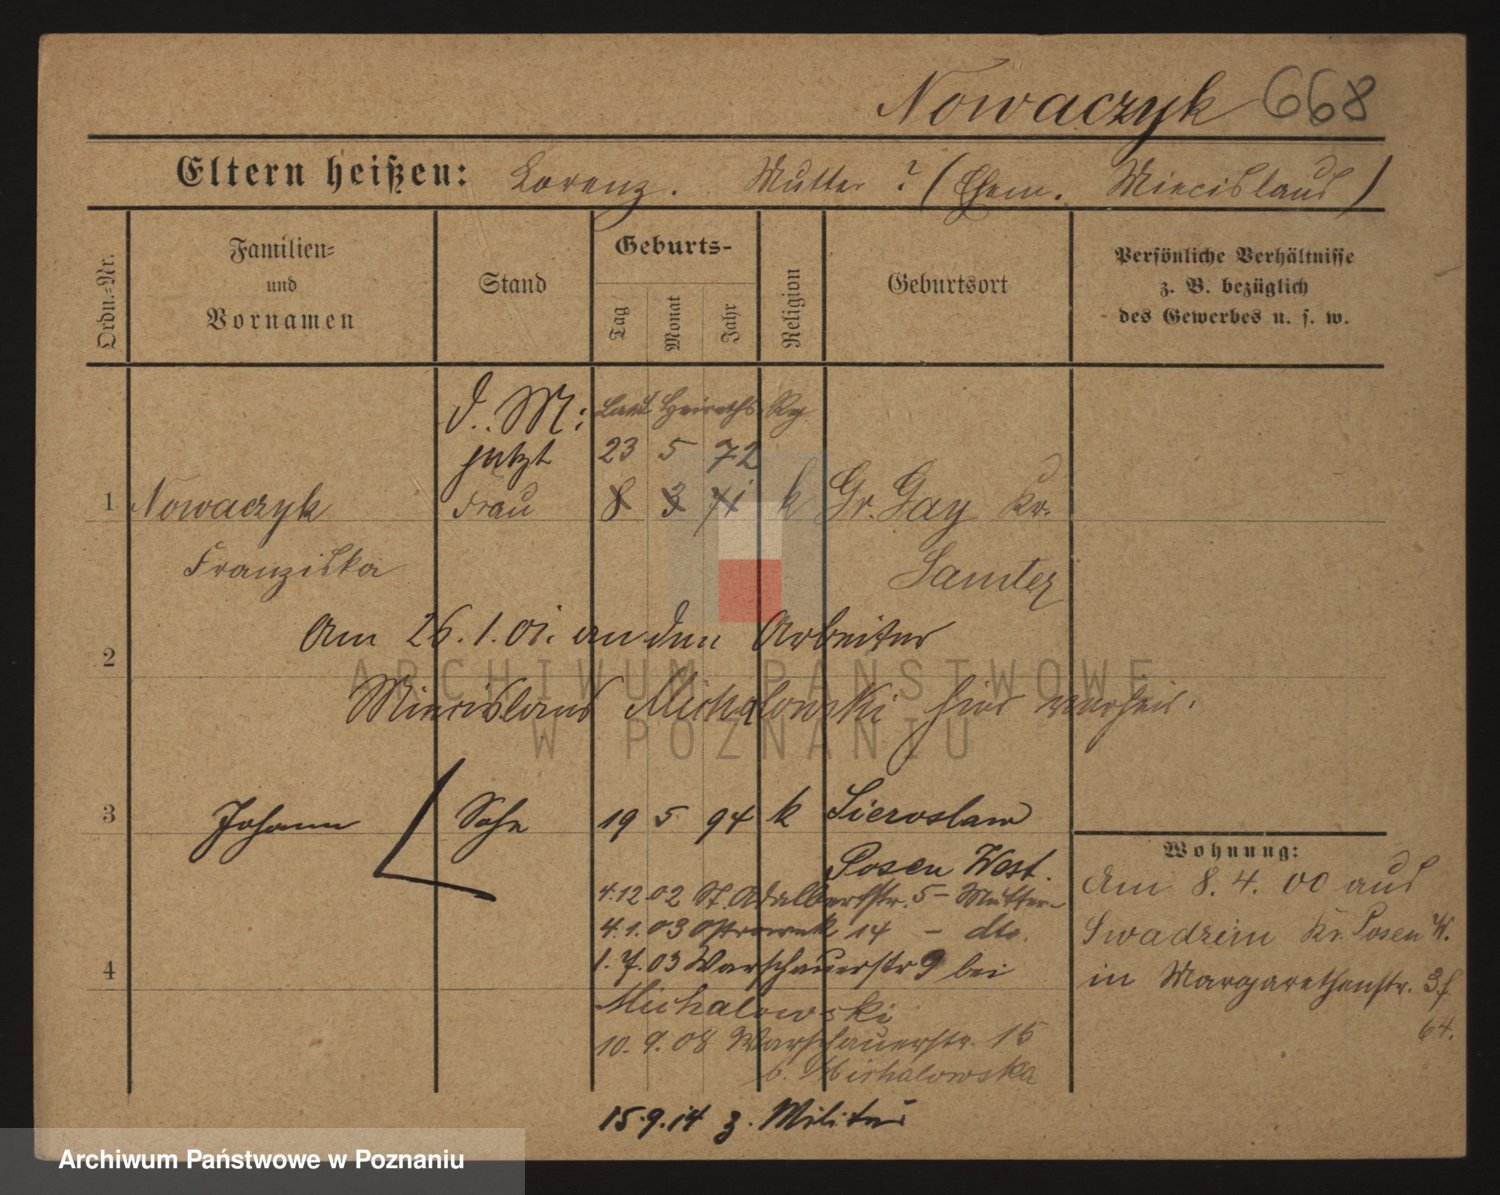 Nowaczyk 668
Eltern heißen: Lorenz. Mutter ? (Ehem. Miecislaus)
Ordn.-Nr.
Familien- und Vornamen
Stand
Geburts-
Tag
Monat
Jahr
Religion
Geburtsort
Persönliche Verhältnisse
z. B. bezüglich
des Gewerbes u. s. w.
d. M: Laut Heiraths Rg
jetzt 23 5 72
1 Nowaczyk Frau 8 3 71 k Gr. Gay Kr.
Franziska Samter
Am 26.1.01. an den Arbeiter
2
Miecislaus Michalowski hier verheir.
3 Johann Sohn 19 5 94 k Sieroslaw
Posen West.
4.12.02 St. Adalbertstr. 5 - Mutter
4.1.03 Ostrowek 14 - dto.
1.7.03 Warschauerstr 9 bei
4
Michalowski
10.9.08 Warschauerstr. 15
b. Michalowska
15.9.14 z. Militär
Wohnung:
Am 8.4.00 aus
Swadzim Kr. Posen W.
in Margarethenstr. 3f
64.
ARCHIWUM PAŃSTWOWE
W POZNANIU
Archiwum Państwowe w Poznaniu